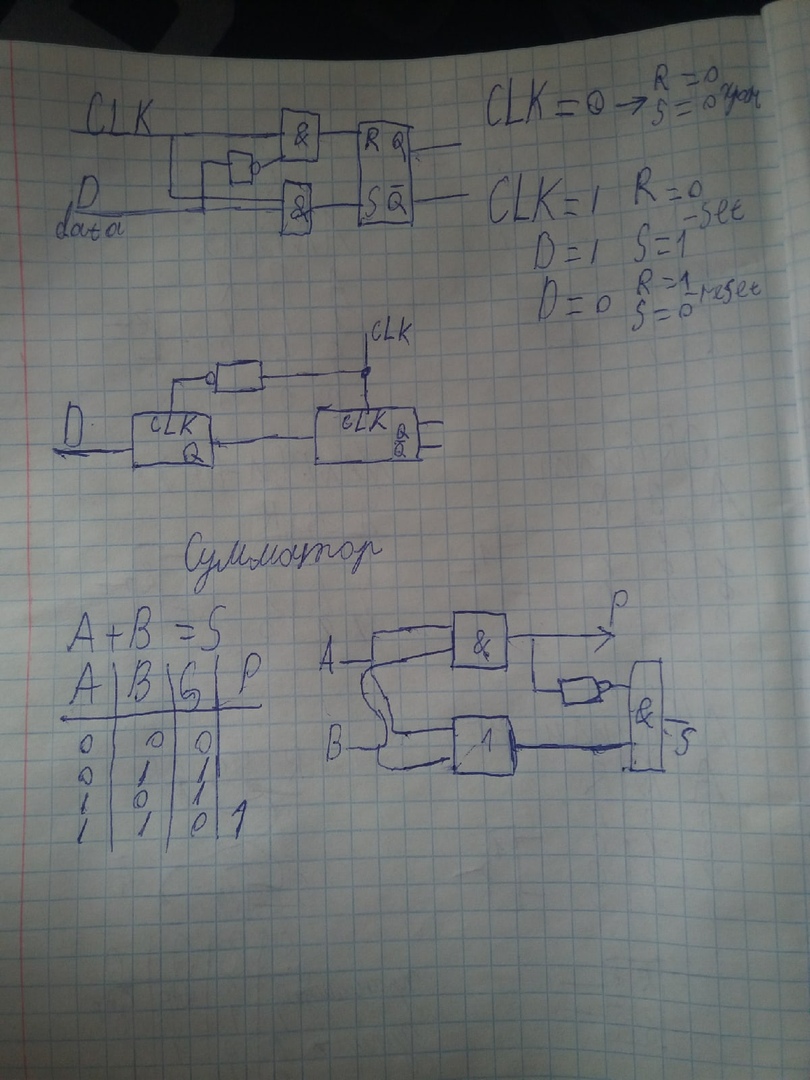 CLK
&
R Q
D
data
&
S Q̅
CLK = 0 → R = 0
S = 0 хран
CLK = 1 R = 0
- Set
D = 1 S = 1
D = 0 R = 1
S = 0 - reset
CLK
D
CLK
Q
CLK
Q
Q̅
Сумматор
A + B = S
A B S P
0 0 0
0 1 1
1 0 1
1 1 0 1
A
&
P
B
1
&
S